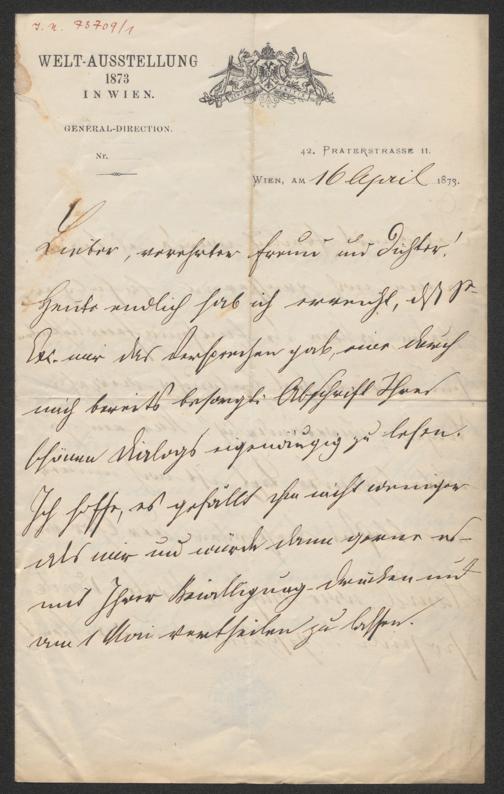 J. N. 73709/1
WELT-AUSSTELLUNG
1873
IN WIEN.
GENERAL-DIRECTION.
Nr.
42. PRATERSTRASSE 42.
WIEN, AM 16 April 1873.
Lieber, verehrter Freund und Dichter!
Heute endlich hab ich erreicht, daß Sr
Exc. mir das Versprechen gab, eine durch
mich bereits besorgte Abschrift Ihres
schönen Dialogs eigenäugig zu lesen.
Ich hoffe, es gefällt ihm nicht weniger
als mir und würde dann gerne es
mit Ihrer Bewilligung drucken und
am 1 Mai vertheilen zu lassen.